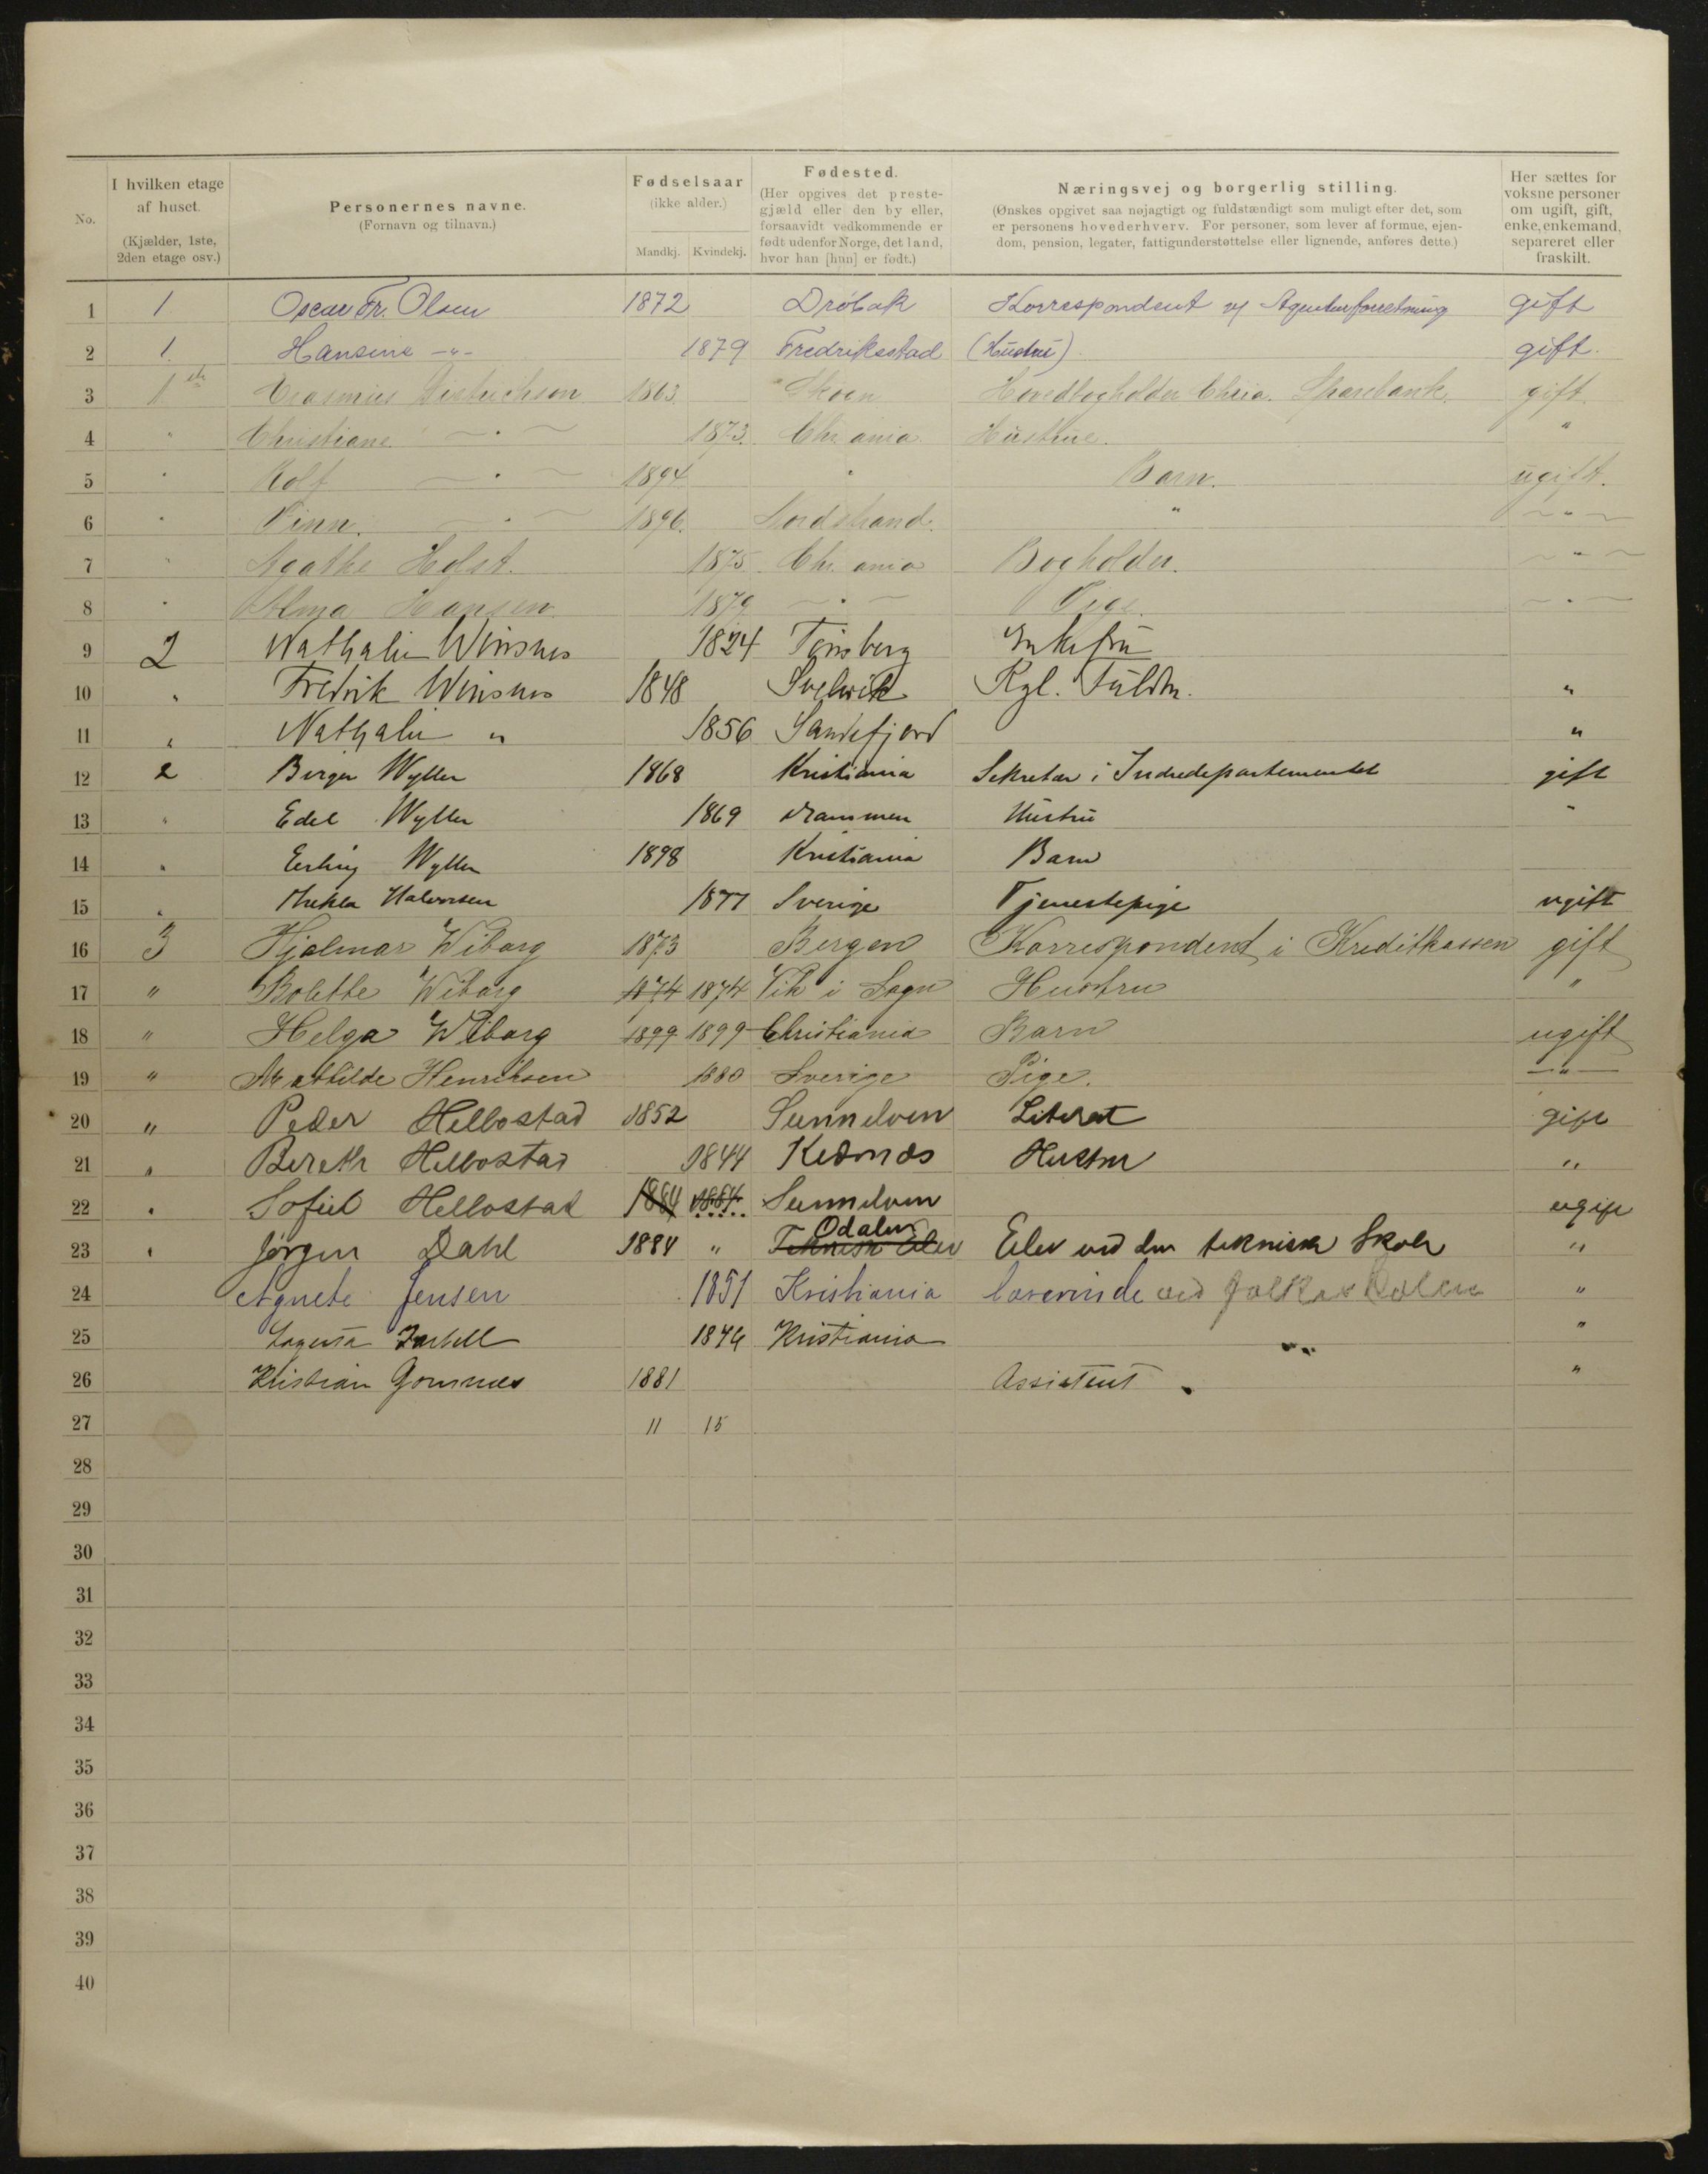 No.
I hvilken etage af huset.
(Kjælder, 1ste, 2den etage osv.)
Personernes navne.
(Fornavn og tilnavn.)
Fødselsaar
(ikke alder.)
Mandkj. Kvindekj.
Fødested.
(Her opgives det prestegjæld eller den by eller, forsaavidt vedkommende er født udenfor Norge, det land, hvor han [hun] er født.)
Næringsvej og borgerlig stilling.
(Ønskes opgivet saa nøjagtigt og fuldstændigt som muligt efter det, som er personens hovederhverv. For personer, som lever af formue, ejendom, pension, legater, fattigunderstøttelse eller lignende, anføres dette.)
Her sættes for voksne personer om ugift, gift, enke, enkemand, separeret eller fraskilt.
1 1 Oscar Fr. Olsen 1872 Dröbak Korrespondent v/ Agenturforretning gift
2 1. Hansine -"- 1879 Fredriksstad (Hustru) gift.
3 1 Erasmus Dietrichson 1863. Skoen Hovedbogholder Chria. Sparebank. gift.
4 " Christiane. — " — 1873. Chr.ania. Hustrue. "
5 " Rolf — " — 1894 " Barn. ugift.
6 " Finn. — " — 1896. Nordstrand. " — " —
7 " Agathe Holst. 1875 Chr.ania Bogholder. — " —
8 " Alma Hansen 1879 — " — Pige. — " —
9 2 Nathalie Winsnes 1824 Tönsberg Enkefru
10 " Fredrik Winsnes 1848 Svelvik Kgl. Fuldm. "
11 " Nathalie " 1856 Sandefjord "
12 2 Birger Wyller 1868 Kristiania Sekretær i Indredepartementet gift
13 " Edel Wyller 1869 Drammen Hustru "
14 " Erling Wyller 1898 Kristiania Barn
15 " Thekla Halvorsen 1877 Sverige Tjenestepige ugift
16 3 Hjalmar Wiborg 1873 Bergen Korrespondent i Kreditkassen gift
17 " Bolette Wiborg 1874 1874 Vik i Sogn Hustru "
18 " Helga Wiborg 1899 1899 Christiania Barn ugift
19 " Mathilde Henriksen 1880 Sverige Pige. — " —
20 " Peder Hellostad 1852 Sunnelven Literat gift
21 " Bereth Hellostad 1844 Hustru "
22 " Hellostad 1884 1884 Sunnelven ugift
23 " Jørgen Dahl 1884 " Odalen Teknisk Elev Elev ved den tekniske Skole "
24 Agnete Jensen 1851 Kristiania lærerinde ved Folkeskolen "
25 1846 Kristiania " "
26 Kristian 1881 Assistent "
27 11 15
28
29
30
31
32
33
34
35
36
37
38
39
40